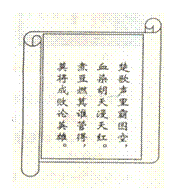 楚歌声里霸图空，
血染胡天漫天红。
煮豆燃萁谁管得，
莫将成败论英雄。